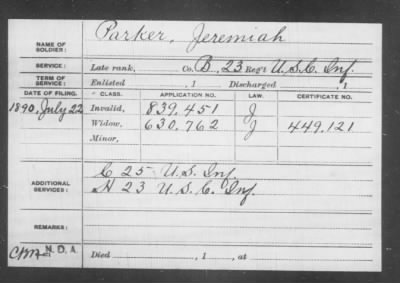 NAME OF SOLDIER: Parker, Jeremiah
SERVICE: Late rank, Co. B, 23 Reg't U.S.C. Inf.
TERM OF SERVICE: Enlisted , 1 Discharged , 1
DATE OF FILING. CLASS. APPLICATION NO. LAW. CERTIFICATE NO.
1890, July 22 Invalid, 839.451 J
Widow, 630.762 J 449.121
Minor,
ADDITIONAL SERVICES: C 25 U.S. Inf.
H 23 U.S.C. Inf.
REMARKS:
N.D.A. Died , 1 , at